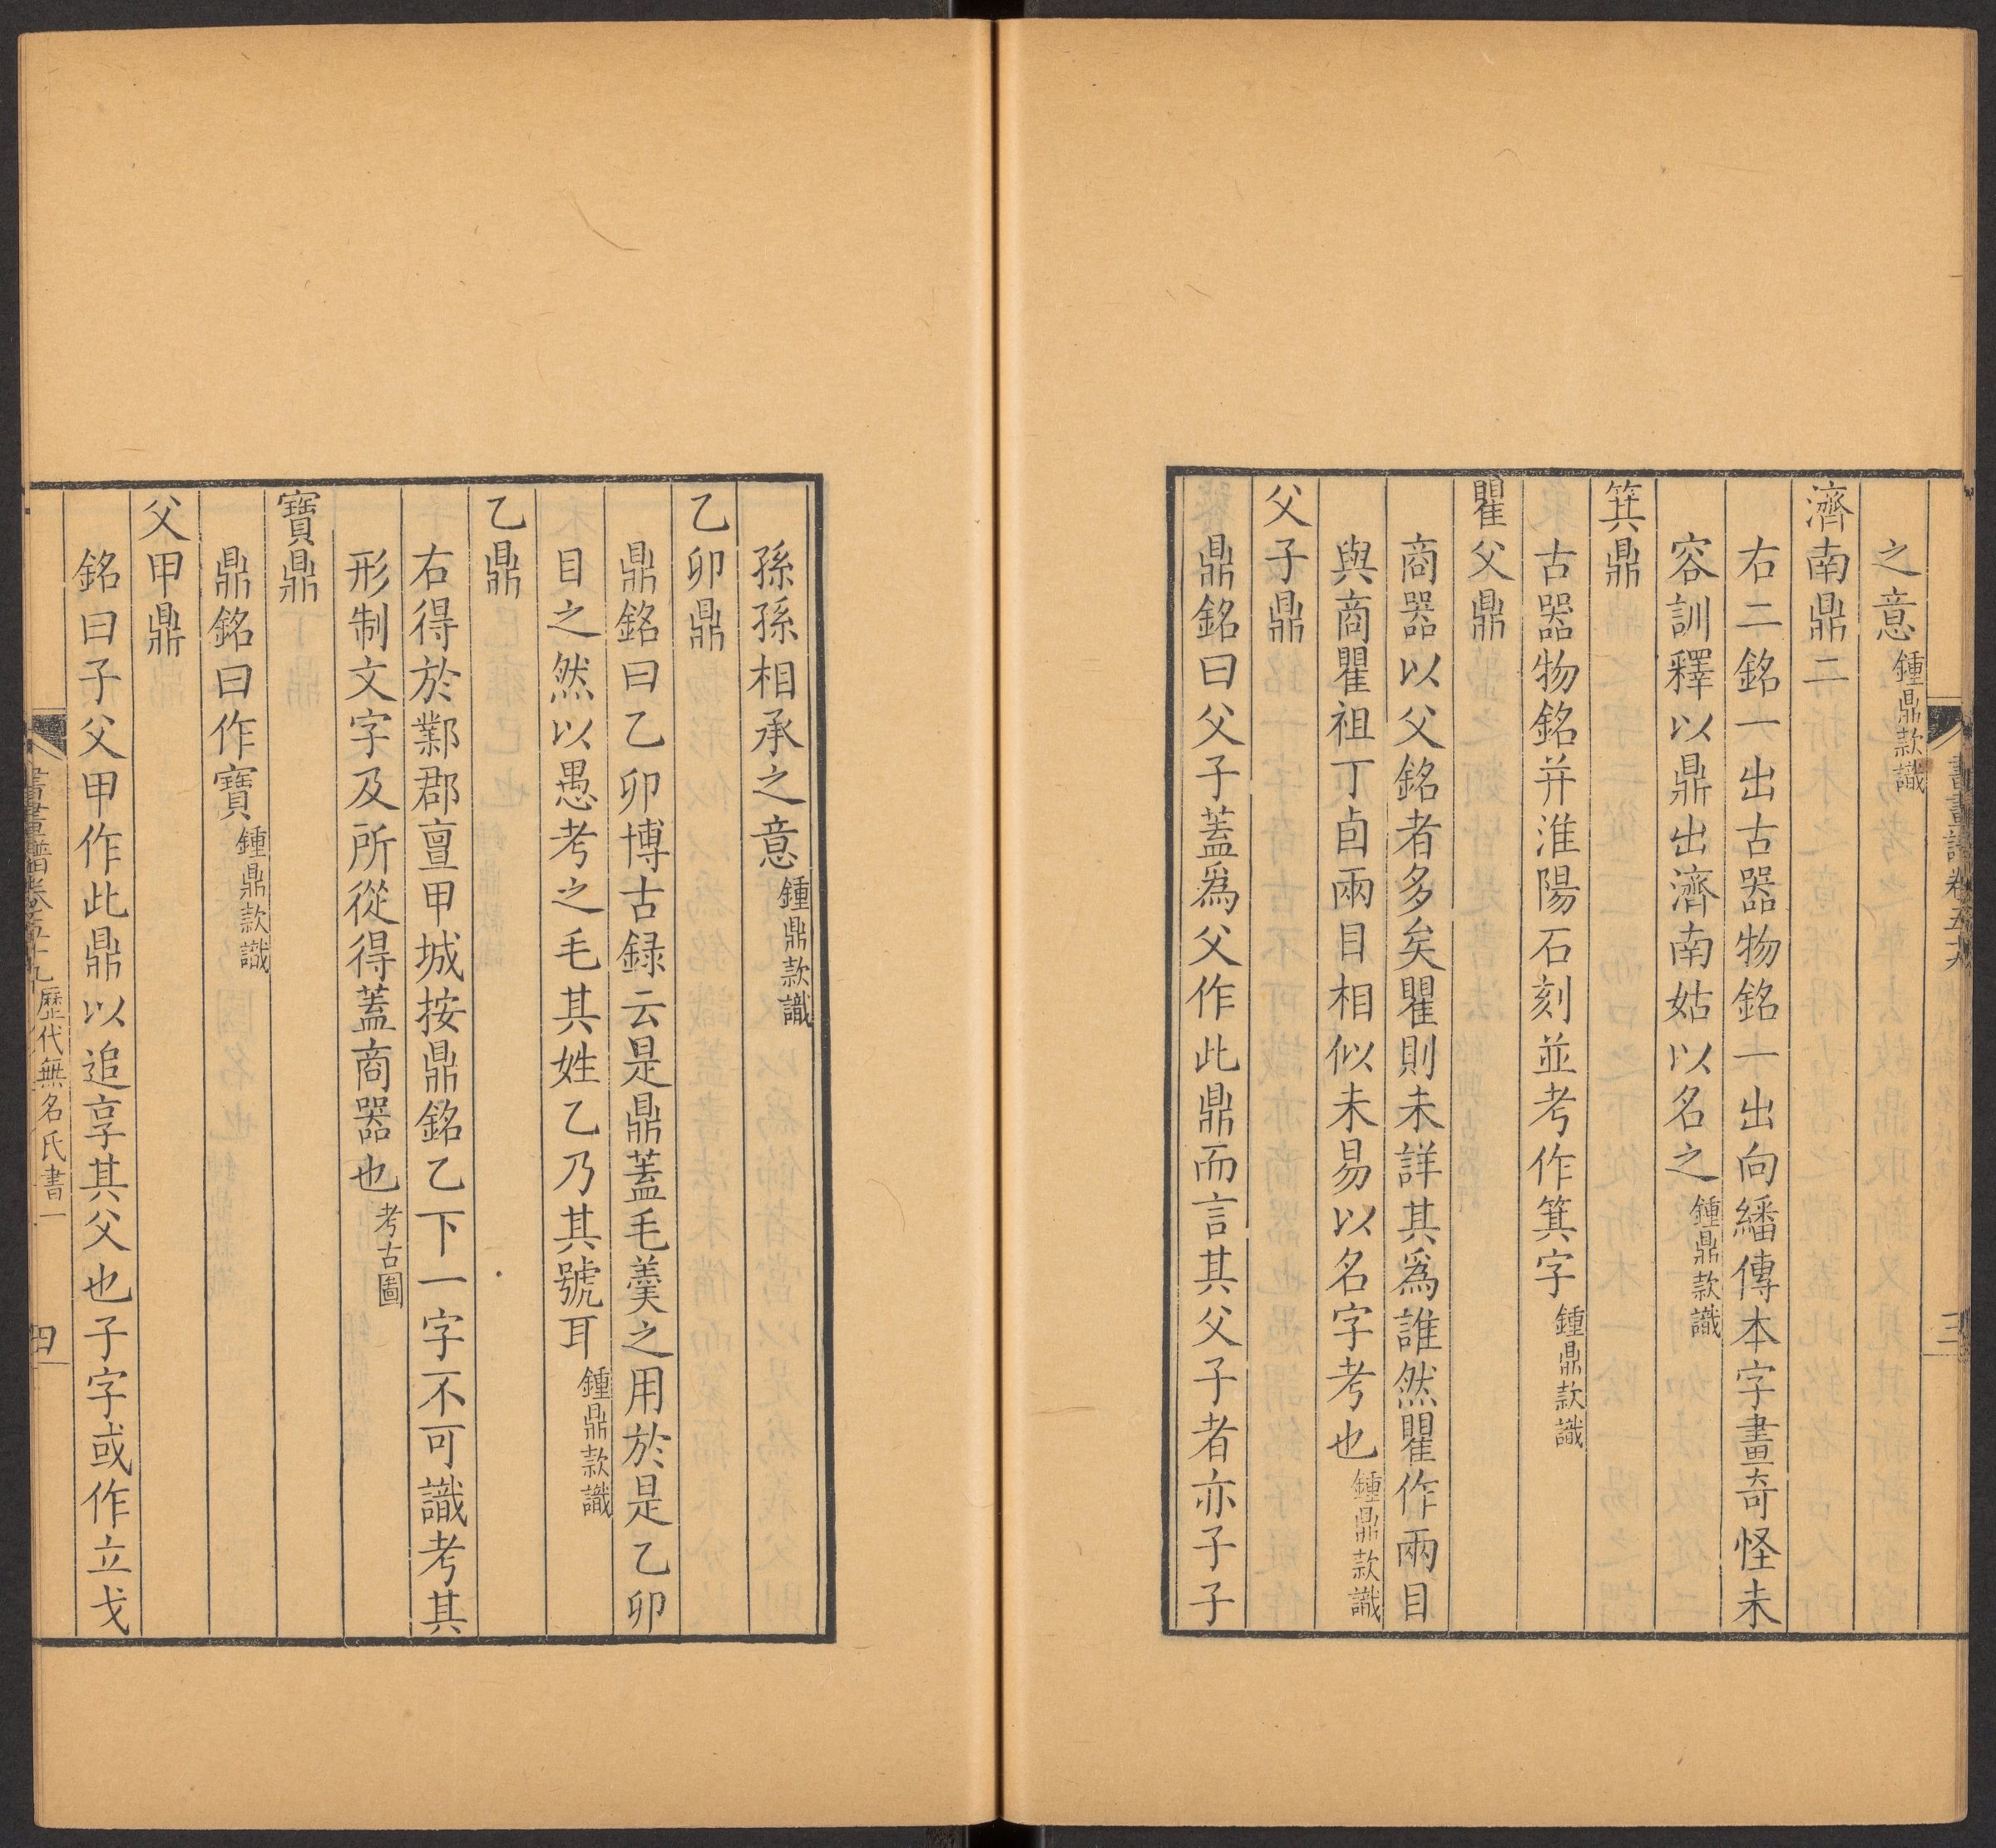 書畫譜卷五十九
三
之意鍾鼎款識
濟南鼎二
右二銘一出古器物銘一出向繙傳本字畫奇怪未
容訓釋以鼎出濟南姑以名之鍾鼎款識
箕鼎
古器物銘并淮陽石刻並考作箕字鍾鼎款識
瞿父鼎
商器以父銘者多矣瞿則未詳其爲誰然瞿作兩目
與商瞿祖丁卣兩目相似未易以名字考也鍾鼎款識
父子鼎
鼎銘曰父子蓋爲父作此鼎而言其父子者亦子子
孫孫相承之意鍾鼎款識
乙卯鼎
鼎銘曰乙卯博古録云是鼎蓋毛羹之用於是乙卯
目之然以愚考之毛其姓乙乃其號耳鍾鼎款識
乙鼎
右得於鄴郡亶甲城按鼎銘乙下一字不可識考其
形制文字及所從得蓋商器也考古圖
寶鼎
鼎銘曰作寶鍾鼎款識
父甲鼎
銘曰子父甲作此鼎以追享其父也子字或作立戈
書畫譜卷五十九 歷代無名氏書一
四